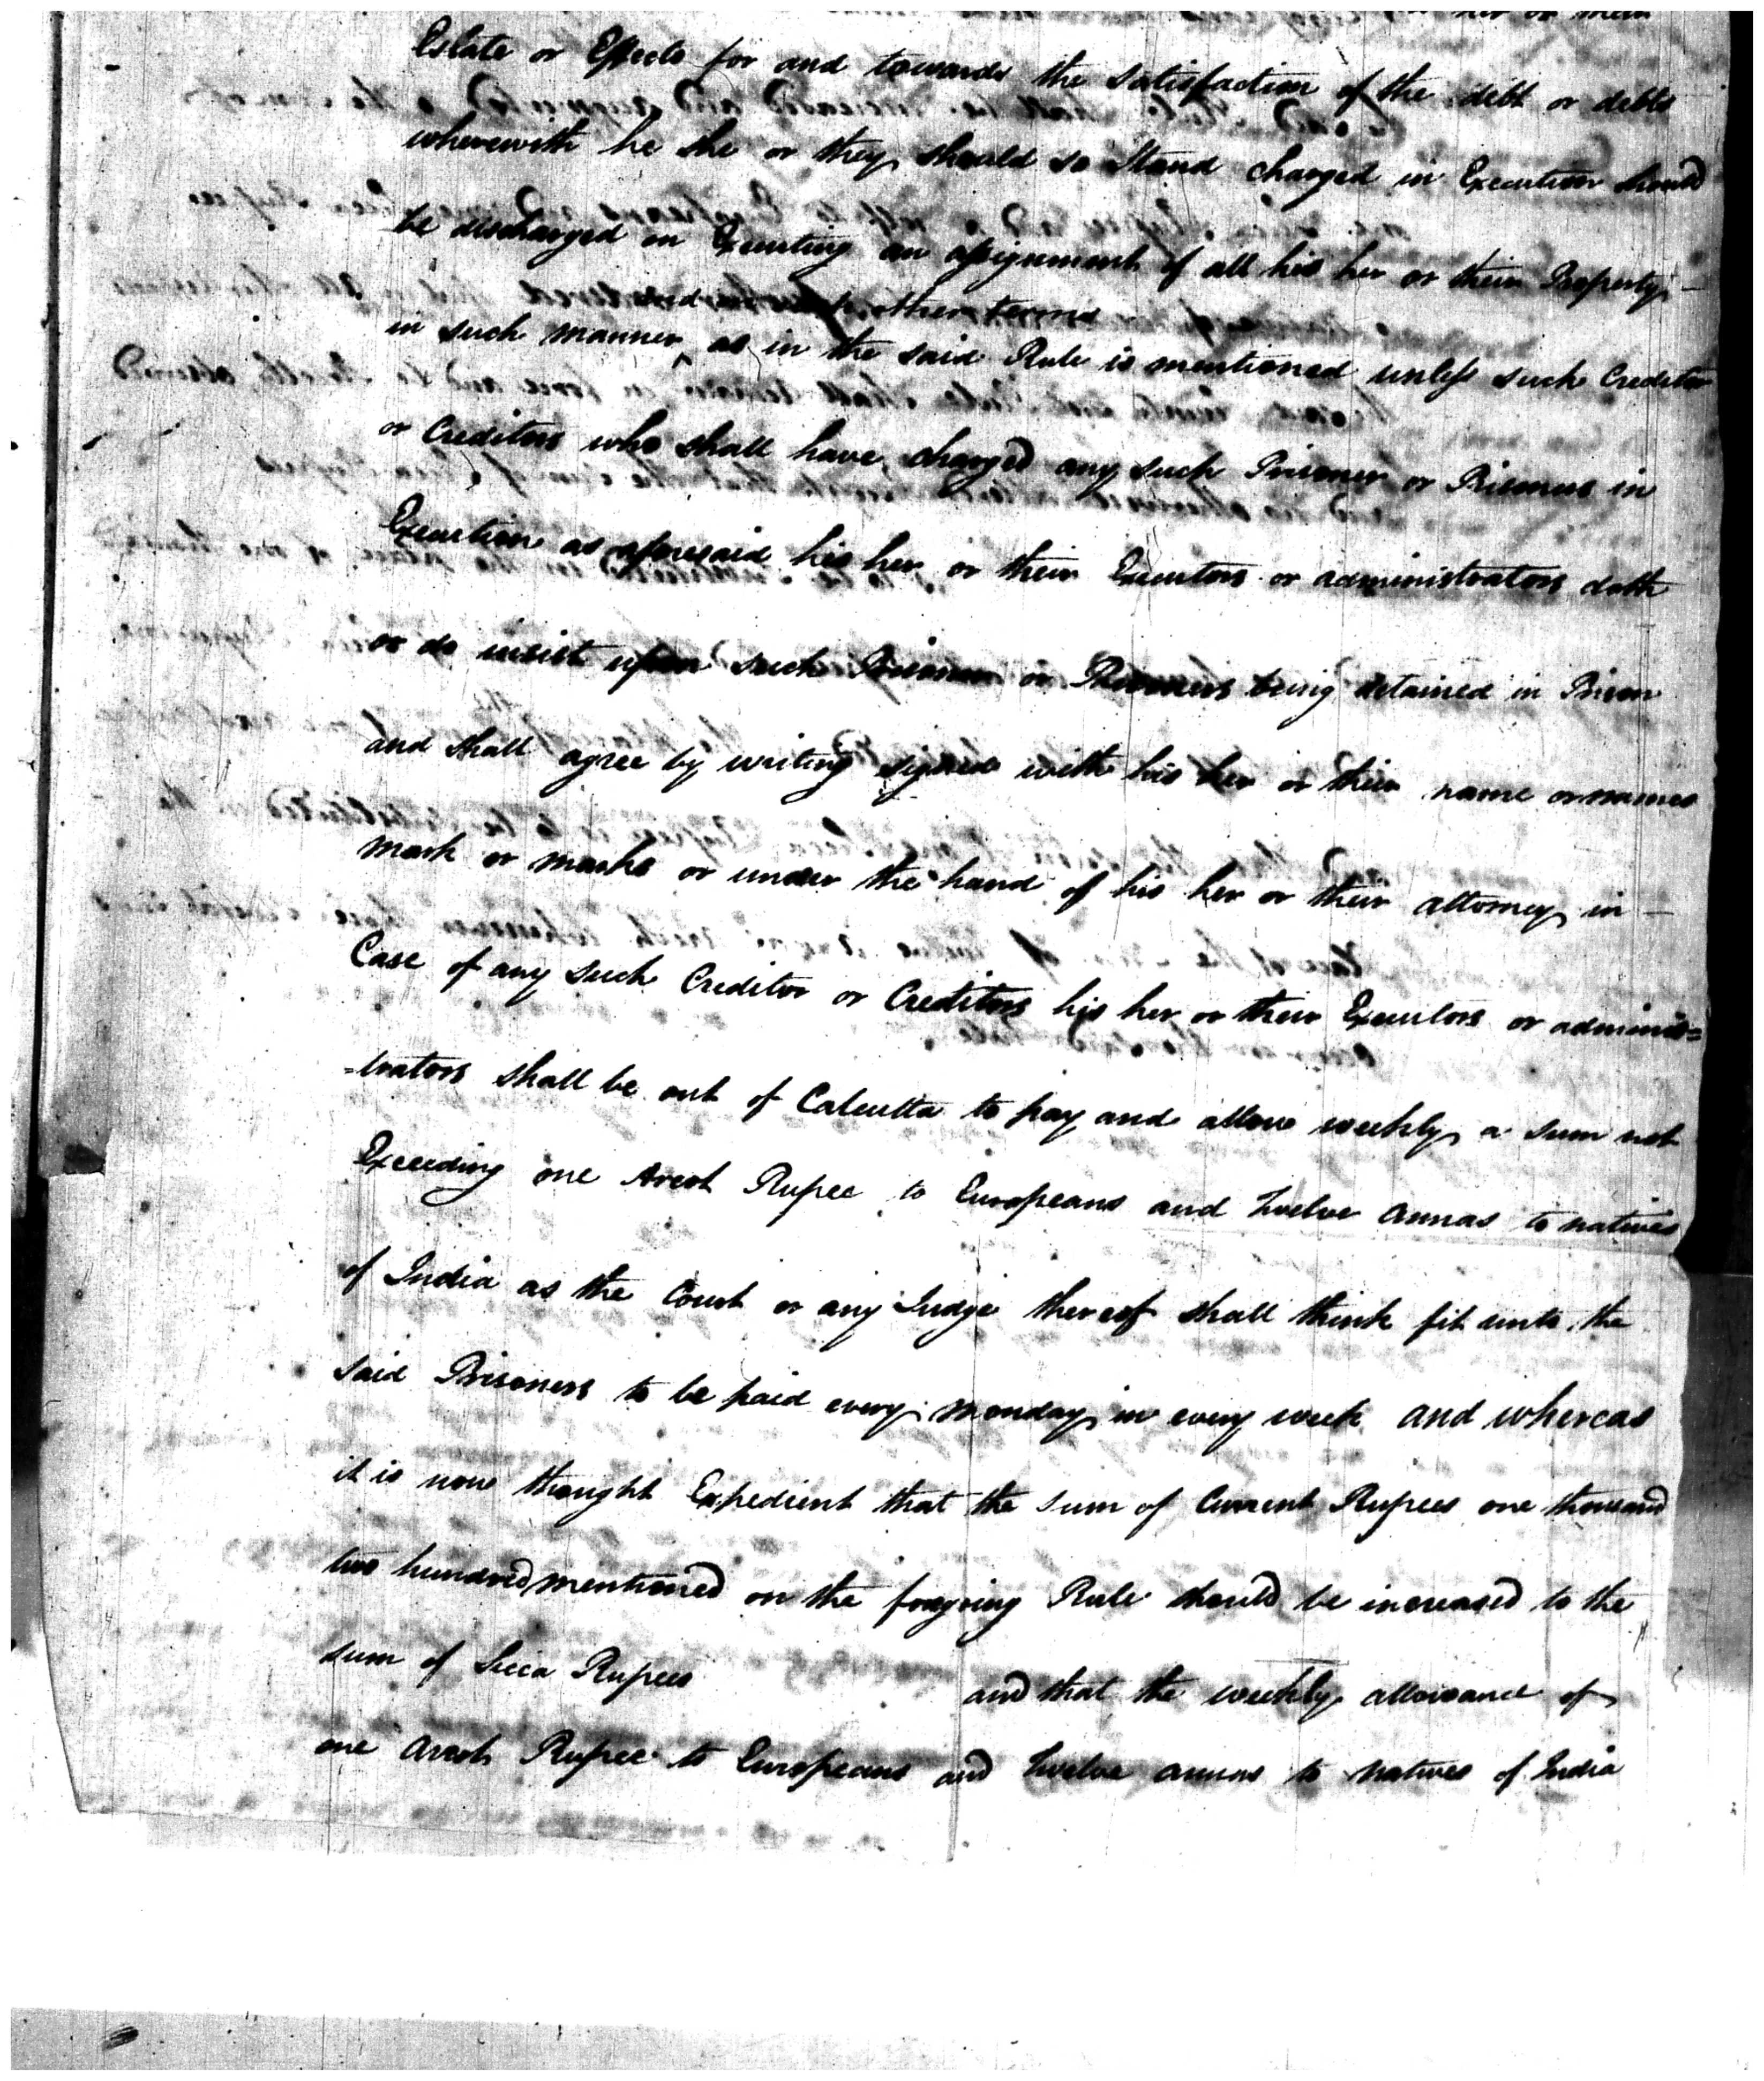 her or their
Estate or Effects for and towards the satisfaction of the debt or debts
wherewith he she or they should so Stand charged in Execution should
be discharged on Executing an assignment of all his her or their Property
and other terms
in such manner as in the said Rule is mentioned unless such Creditor
or Creditors who shall have charged any such Prisoner or Prisoners in
Execution as aforesaid his her or their Executors or administrators doth
or do insist upon such Prisoner or Prisoners being detained in Prison
and shall agree by writing signed with his her or their name or names
mark or marks or under the hand of his her or their attorney in —
Case of any such Creditor or Creditors his her or their Executors or adminis=
=trators shall be out of Calcutta to pay and allow weekly a sum not
Exceeding one Arcot Rupee to Europeans and twelve annas to natives
of India as the Court or any Judge thereof shall think fit unto the
said Prisoners to be paid every monday in every week and whereas
it is now thought Expedient that the sum of Current Rupees one thousand
two hundred mentioned on the foregoing Rule should be increased to the
sum of Sicca Rupees and that the weekly allowance of
one Arcot Rupee to Europeans and twelve annas to natives of India